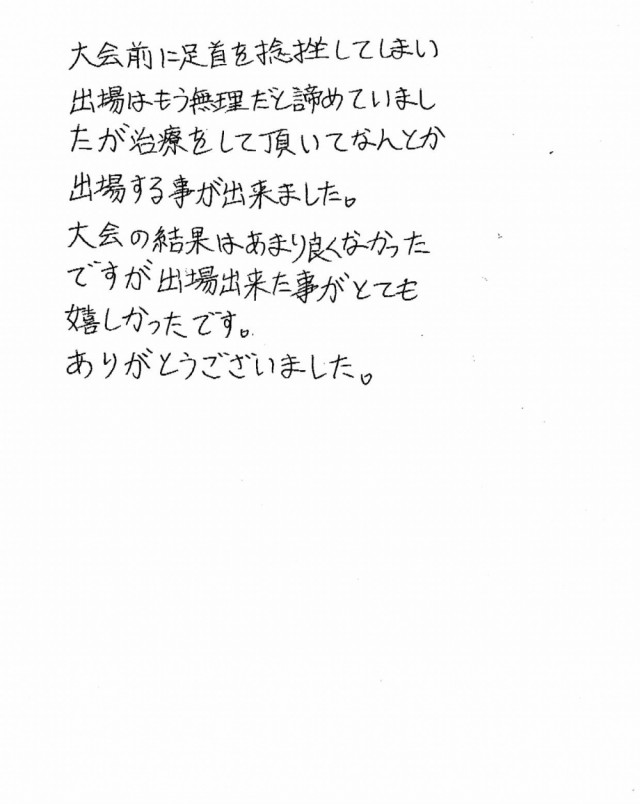 大会前に足首を捻挫してしまい
出場はもう無理だと諦めていまし
たが治療をして頂いてなんとか
出場する事が出来ました。
大会の結果はあまり良くなかった
ですが出場出来た事がとても
嬉しかったです。
ありがとうございました。